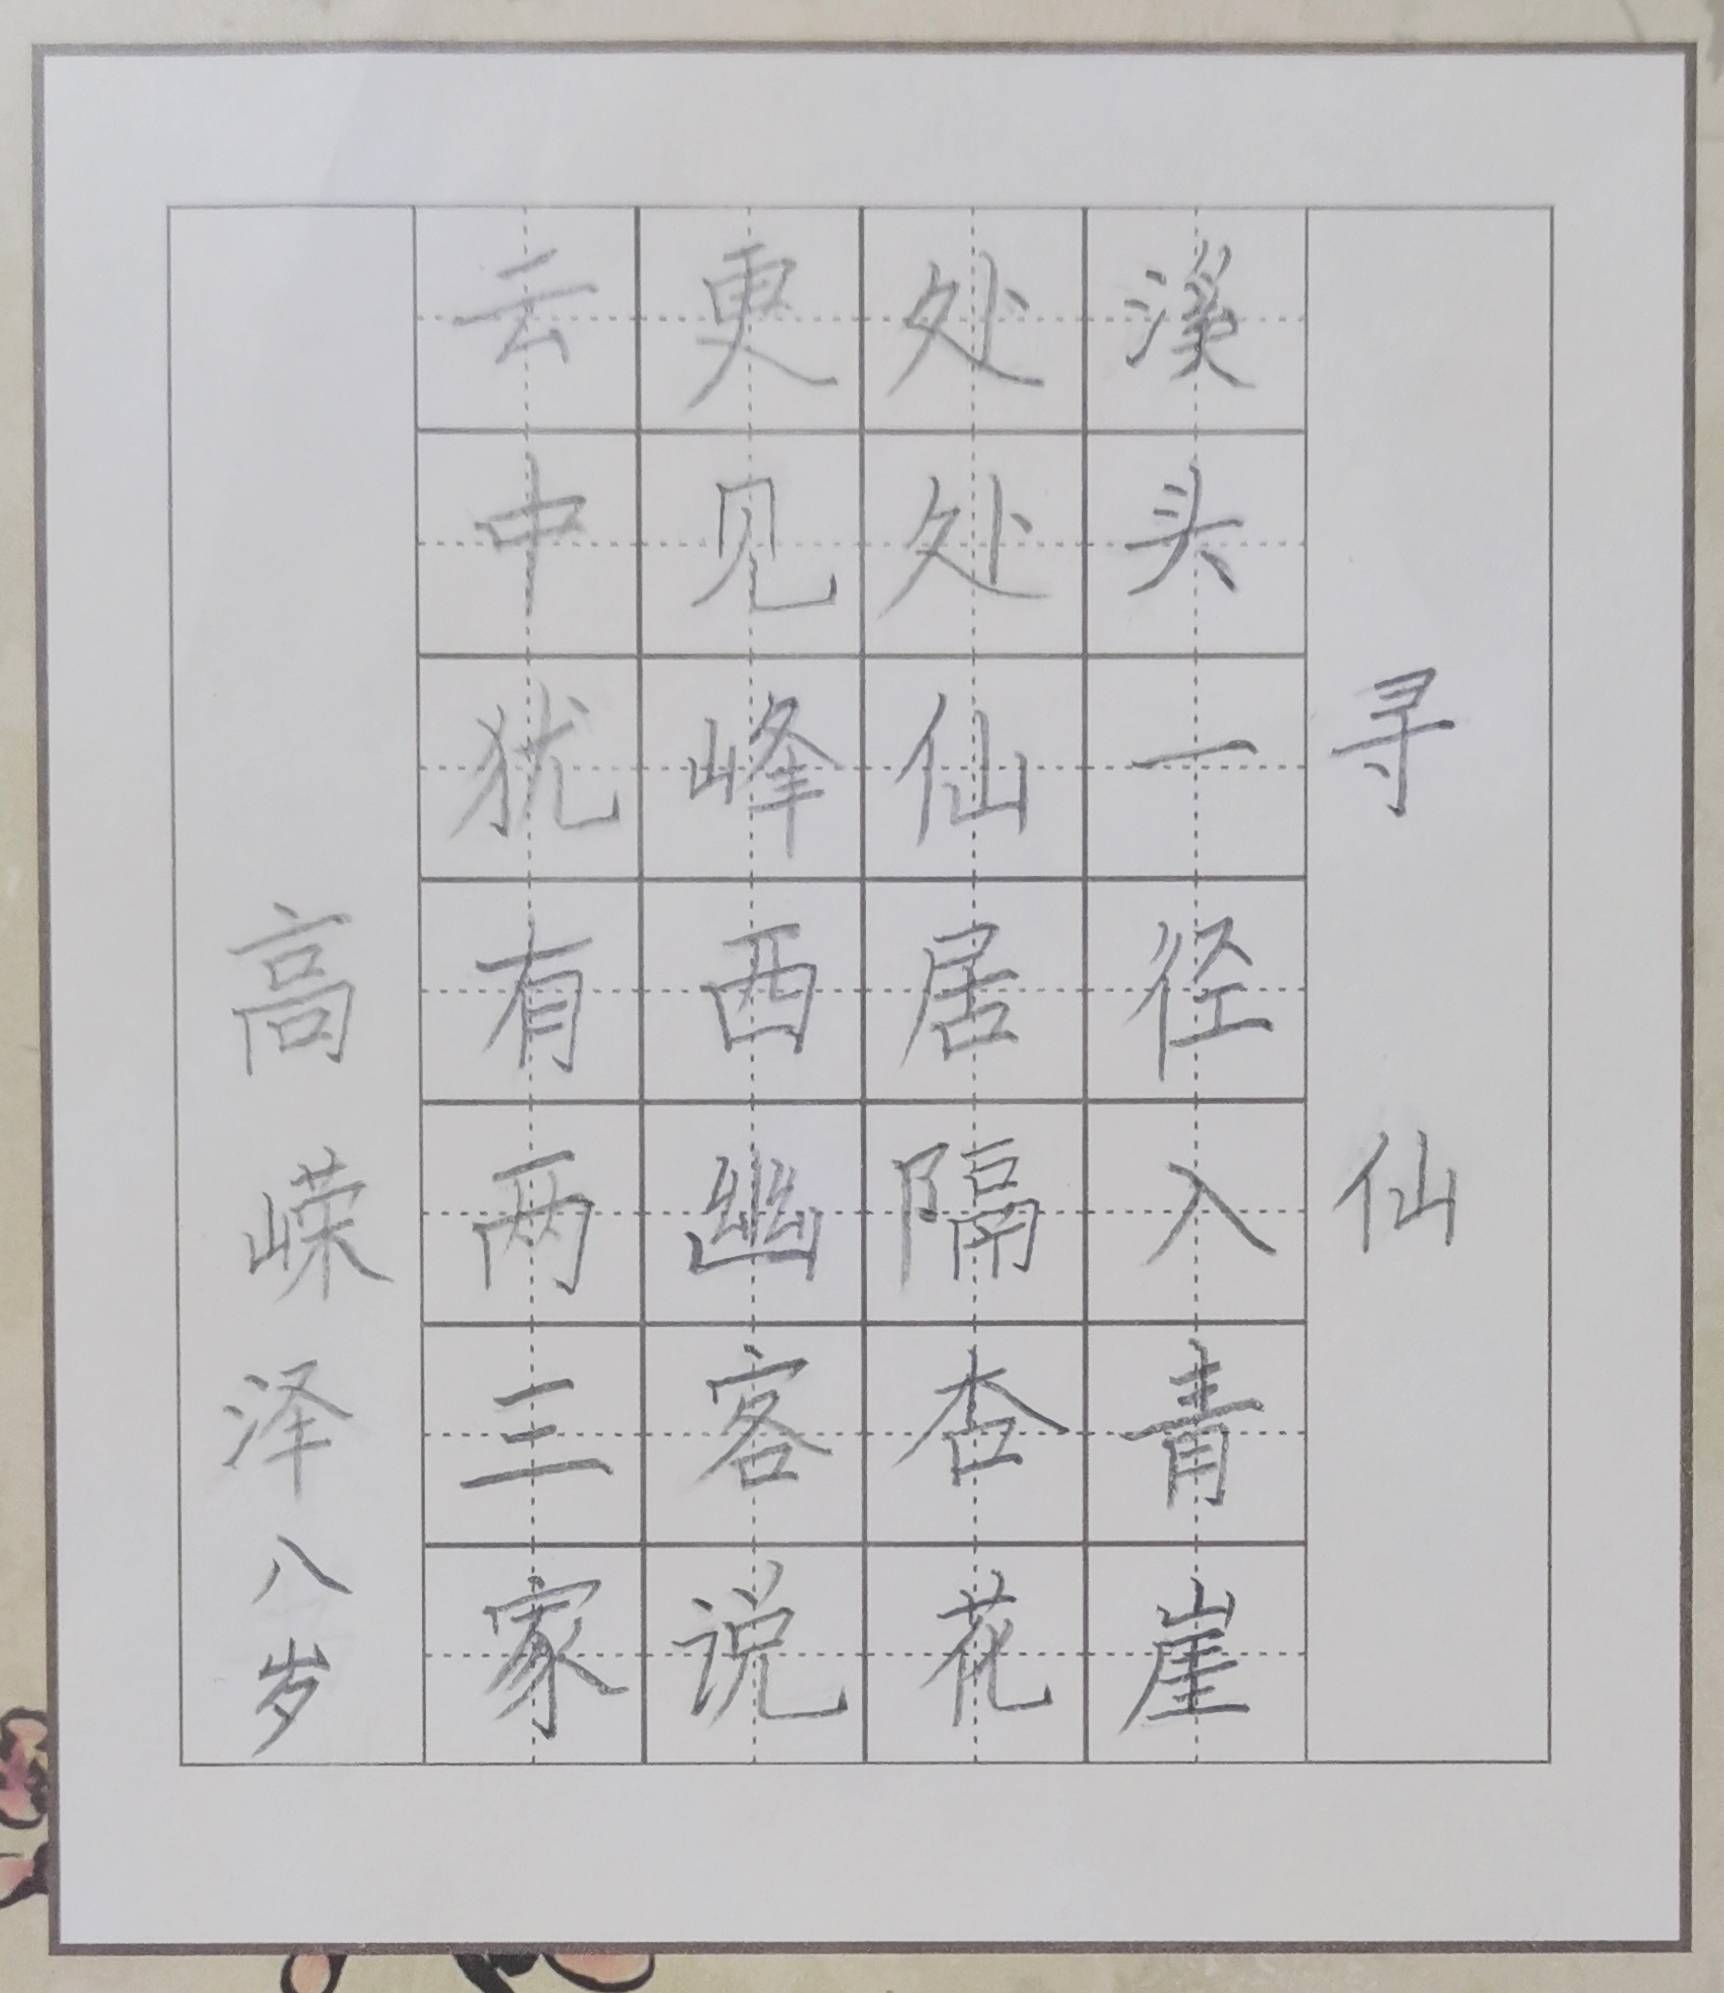 寻仙
溪头一径入青崖
处处仙居隔杏花
更见峰西幽客说
云中犹有两三家
高嵘泽八岁